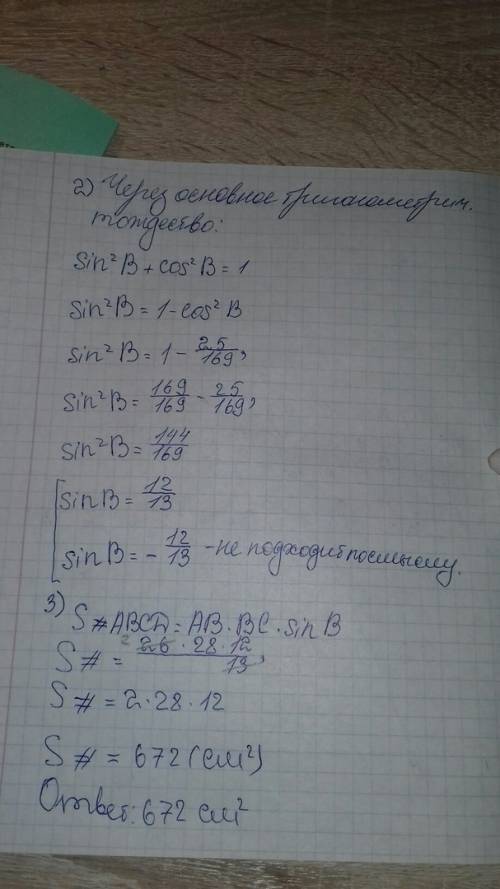 2) Через основное тригонометрич.
тождество:
sin²B + cos²B = 1
sin²B = 1 - cos²B
sin²B = 1 - 25/169,
sin²B = 169/169 - 25/169,
sin²B = 144/169
[ sinB = 12/13
sinB = - 12/13 - не подходит по смыслу.
3)
S#ABCD = AB · BC · sinB
S# = 26 · 28 · 12 / 13,
S# = 2 · 28 · 12
S# = 672 (см²)
Ответ: 672 см²